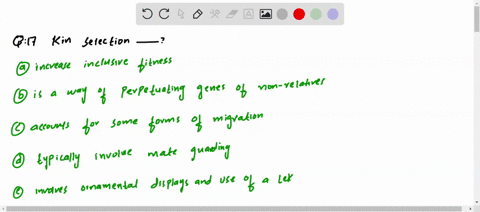 Q:17 Kin selection ___ ?
ⓐ increase inclusive fitness
ⓑ is a way of perpetuating genes of non-relatives
ⓒ accounts for some forms of migration
ⓓ typically involve mate guading
ⓔ involves ornamental displays and use of a lek